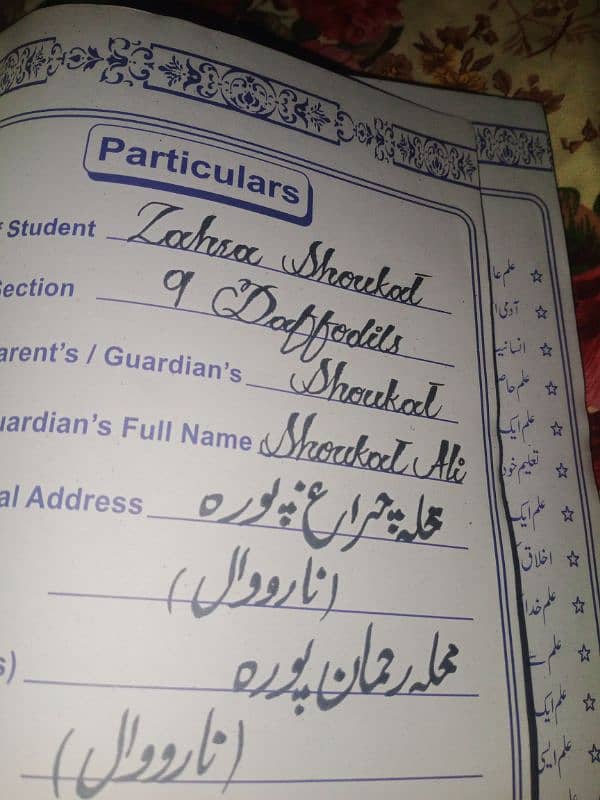 Particulars
f Student Zahra Shoukat
Section 9 Daffodils
arent's / Guardian's Shoukat
uardian's Full Name Shoukat Ali
al Address محلہ چراغ پورہ
(نارووال)
s) محلہ رحمان پورہ
(نارووال)
علم عا
آدمی ا
انسانی
علم حاص
علم ایک
تعلیم خود
علم ایک
اخلاق
علم خدا
علم سے
علم ایک
علم ایسی